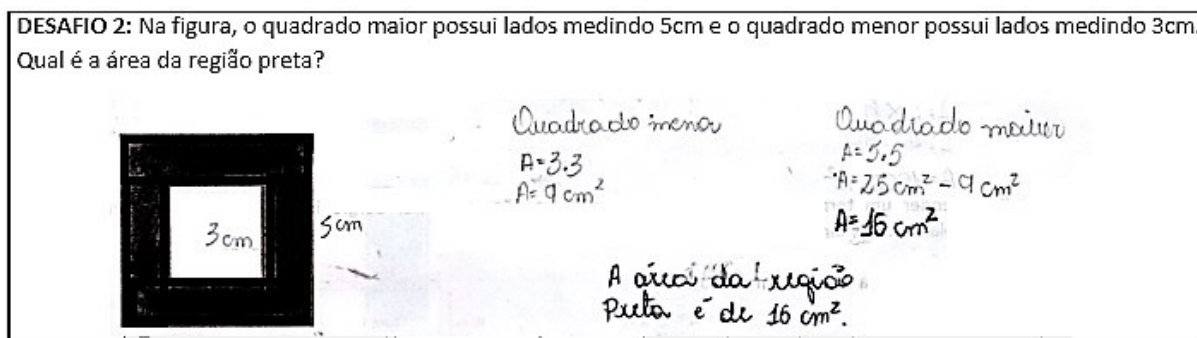 DESAFIO 2: Na figura, o quadrado maior possui lados medindo 5cm e o quadrado menor possui lados medindo 3cm.
Qual é a área da região preta?
Quadrado menor
A=3.3
A=9 cm²
Quadrado maior
A=5.5
A=25 cm² - 9 cm²
A=16 cm²
3cm
5cm
A área da região
Preta é de 16 cm².